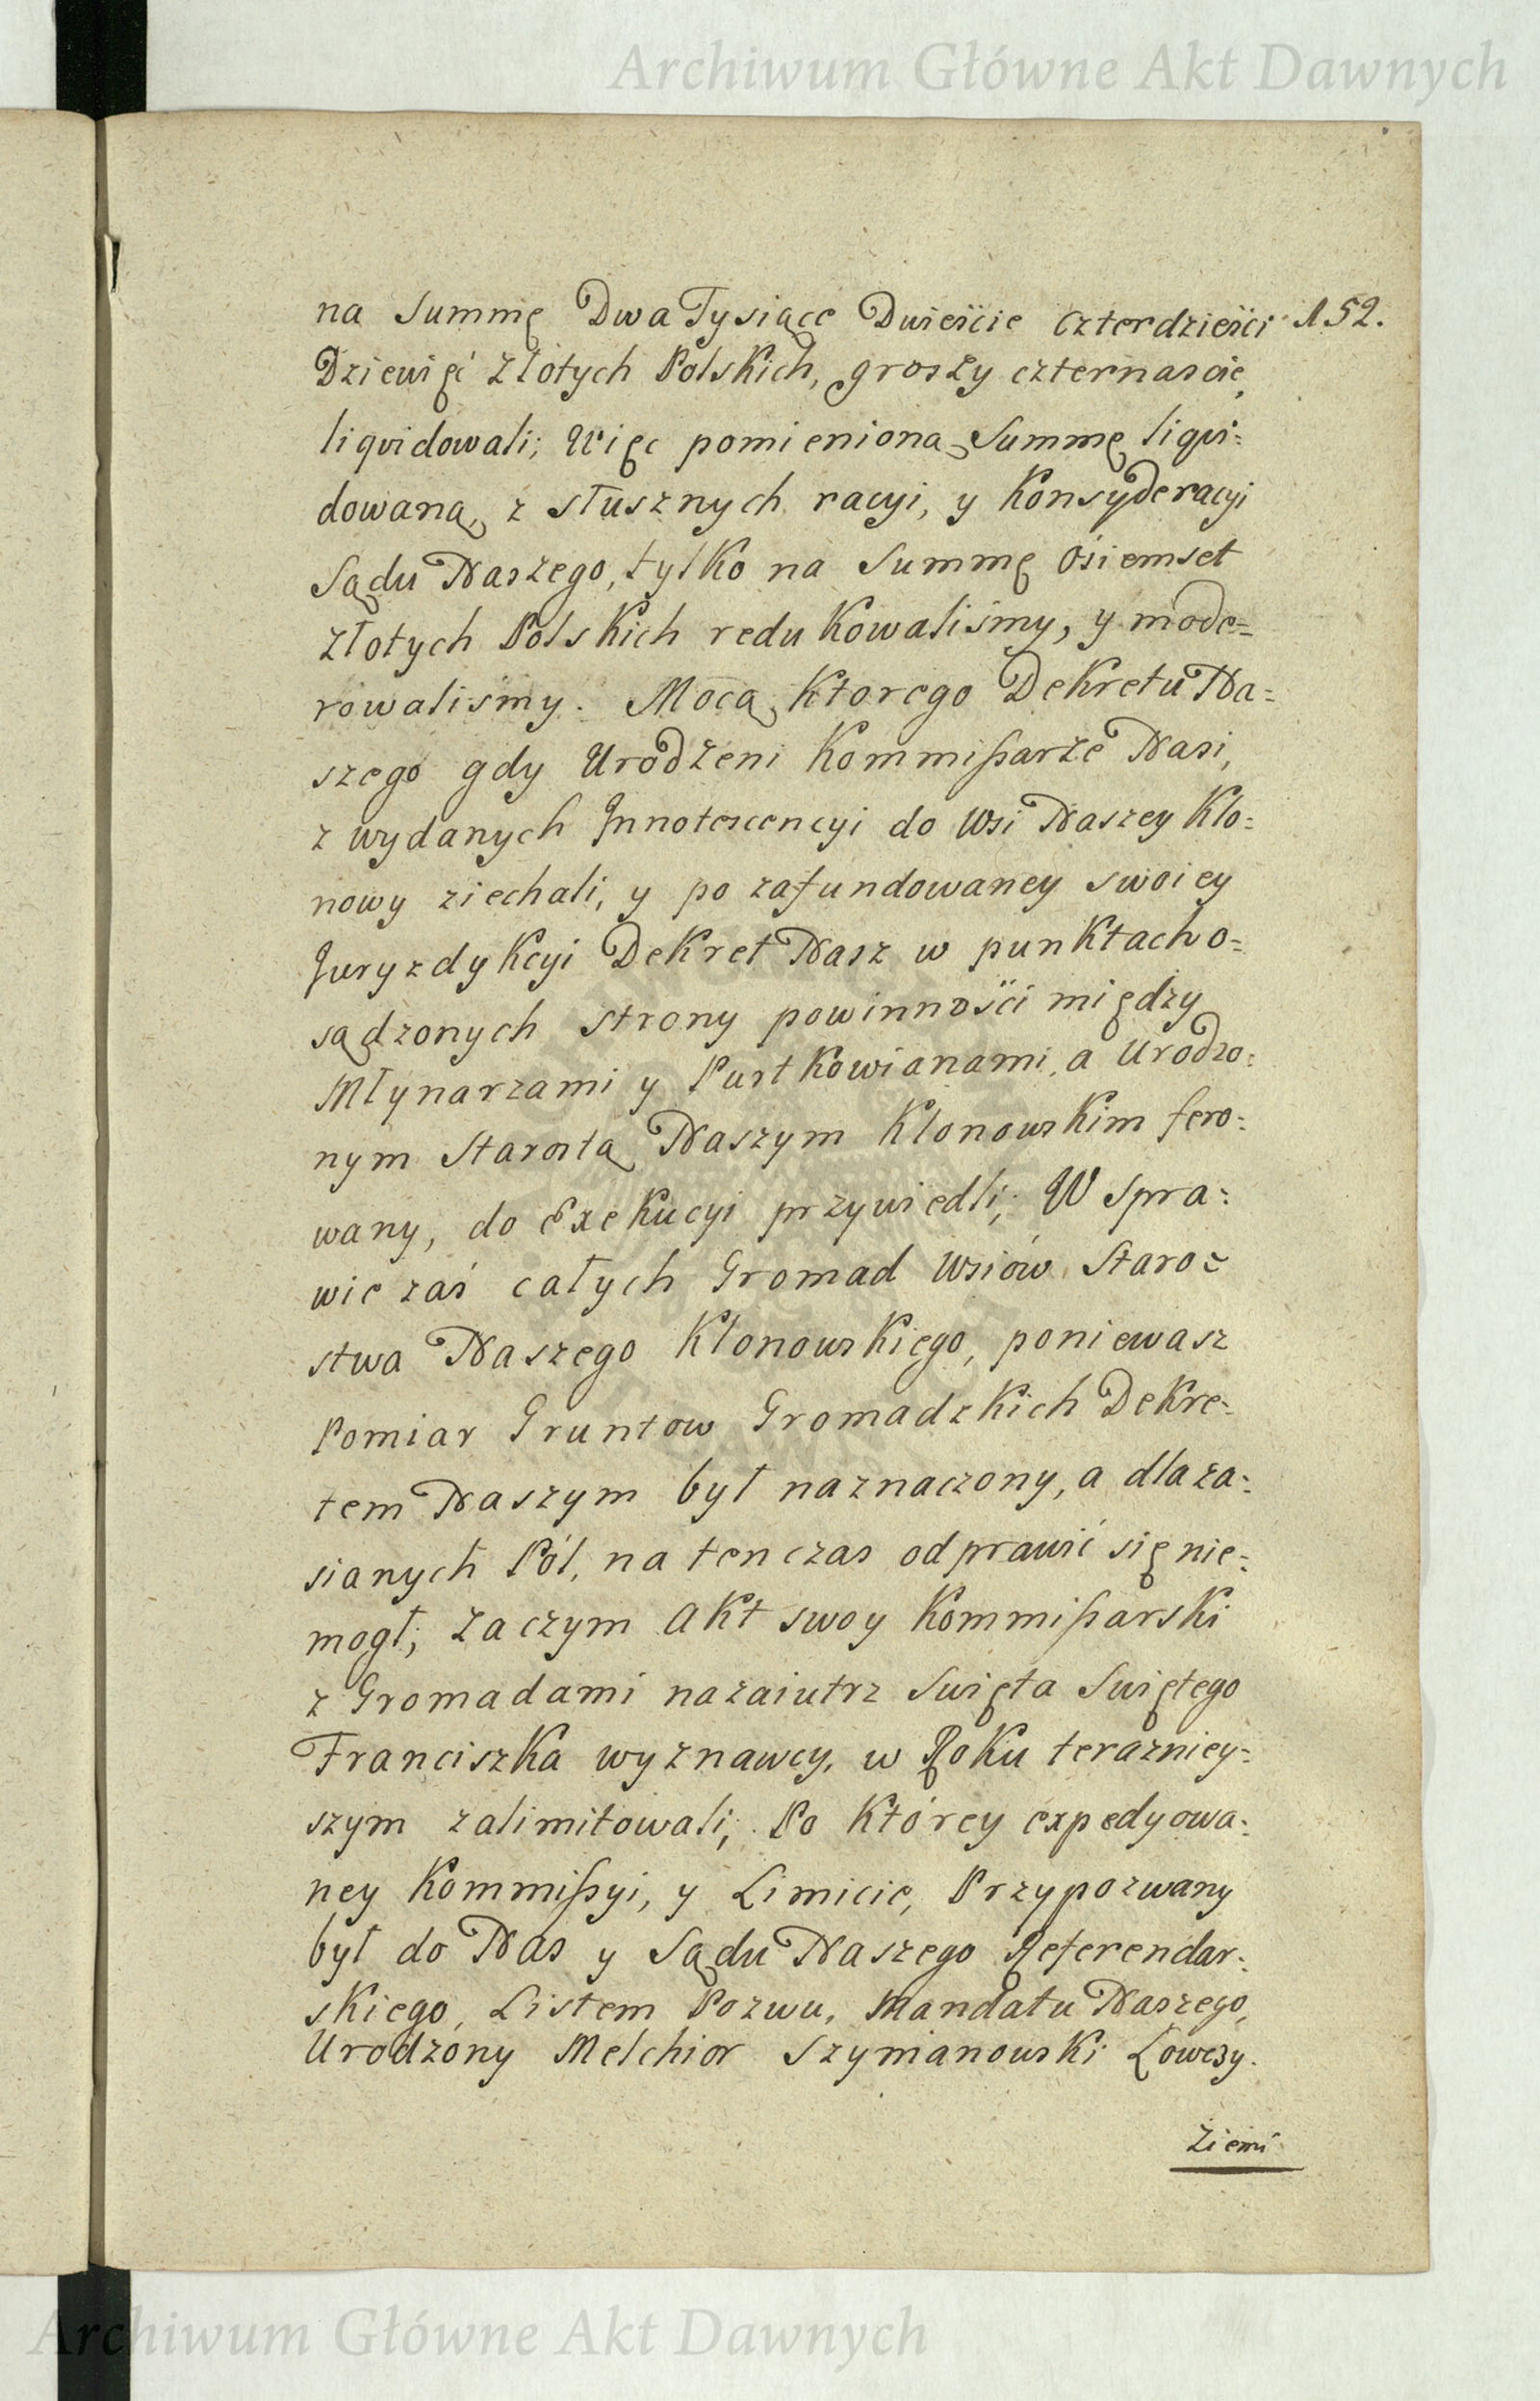 Archiwum Główne Akt Dawnych
na Summę Dwa Tysiące Dwieście czterdzieści 152.
Dziewięć złotych Polskich, groszy czternascie,
liqvidowali; Więc pomienioną Summę liqvi=
dowaną, z słusznych racyi, y Konsyderacyi
Sądu Naszego, tylko na Summę Ośiemset
złotych Polskich redukowaliśmy, y mode=
rowaliśmy. Mocą Ktorego Dekretu Na=
szego gdy Urodzeni Kommißarze Nasi,
z wydanych Innotescencyi do Wsi Naszey Klo=
nowy ziechali, y po zafundowaney swoiey
Juryzdykcyi Dekret Nasz w punktach o=
sądzonych strony powinności między
Młynarzami y Pustkowianami, a Urodzo=
nym Starostą Naszym Klonowskim fero=
wany, do Exekucyi przywiedli; W spra=
wie zaś całych Gromad Wsiów Staro=
stwa Naszego Klonowskiego, poniewasz
Pomiar Gruntow Gromadzkich Dekre=
tem Naszym był naznaczony, a dla za=
sianych Pól, na tenczas odprawić się nie=
mogł; Zaczym Akt swoy Kommißarski
z Gromadami nazaiutrz Swięta Swiętego
Franciszka wyznawcy, w Roku terazniey=
szym zalimitowali; Po Którey expedyowa=
ney Kommißyi, y Limicie, Przypozwany
był do Nas y Sądu Naszego Referendar=
skiego, Listem Pozwu, Mandatu Naszego,
Urodzony Melchior Szymanowski Łowczy.
Ziemi
Archiwum Główne Akt Dawnych